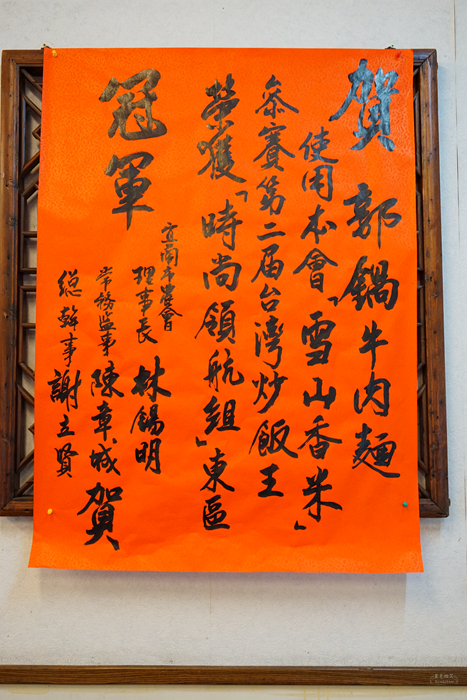 賀 郭鍋牛肉麵
使用本會「雪山香米」
參賽第二屆台灣炒飯王
榮獲「時尚領航組」東區
冠軍
宜蘭市農會
理事長 林錫明
常務監事 陳章城 賀
總幹事 謝立賢